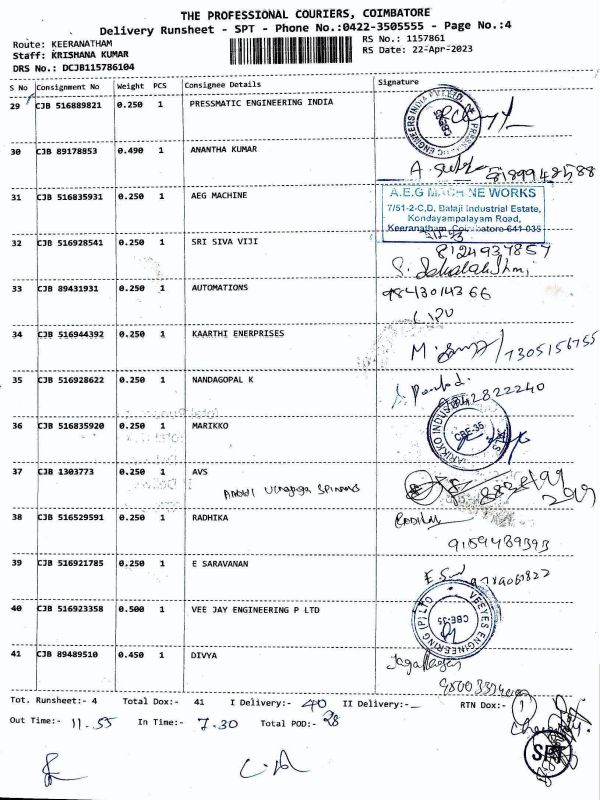 THE PROFESSIONAL COURIERS, COIMBATORE
Delivery Runsheet - SPT - Phone No.:0422-3505555 - Page No.:4
Route: KEERANATHAM
RS No.: 1157861
Staff: KRISHANA KUMAR
RS Date: 22-Apr-2023
DRS No.: DCJB115786104
S No Consignment No Weight PCS Consignee Details Signature
29 CJB 516889821 0.250 1 PRESSMATIC ENGINEERING INDIA
30 CJB 89178853 0.490 1 ANANTHA KUMAR
31 CJB 516835931 0.250 1 AEG MACHINE
A.E.G MACHINE WORKS
7/51-2-C,D, Balaji Industrial Estate,
Kondayampalayam Road,
Keeranatham, Coimbatore-641 035
32 CJB 516928541 0.250 1 SRI SIVA VIJI
8124937857
33 CJB 89431931 0.250 1 AUTOMATIONS
34 CJB 516944392 0.250 1 KAARTHI ENERPRISES
7305156755
35 CJB 516928622 0.250 1 NANDAGOPAL K
9842822240
36 CJB 516835920 0.250 1 MARIKKO
CBE-35
37 CJB 1303773 0.250 1 AVS
38 CJB 516529591 0.250 1 RADHIKA
39 CJB 516921785 0.250 1 E SARAVANAN
40 CJB 516923358 0.500 1 VEE JAY ENGINEERING P LTD
VEEYES ENGINEERING (P) LTD
CBE-35
41 CJB 89489510 0.450 1 DIVYA
Tot. Runsheet:- 4 Total Dox:- 41 I Delivery:- 40 II Delivery:- RTN Dox:- 1
Out Time:- 11.55 In Time:- 7.30 Total POD:- 28